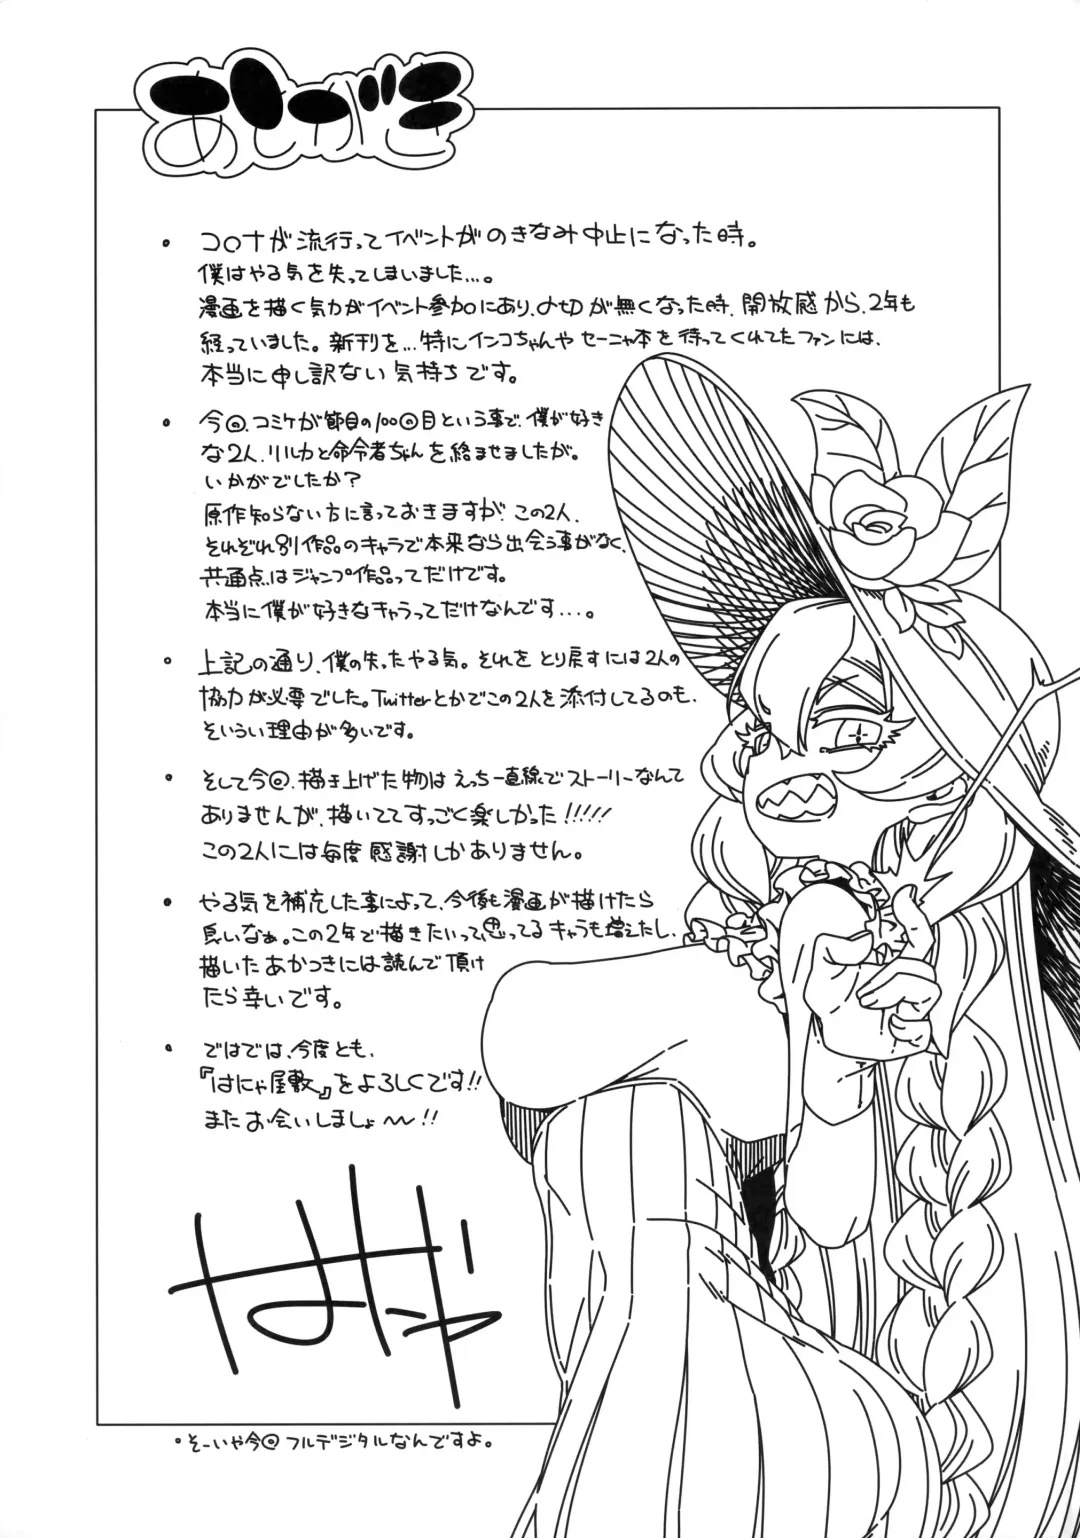 あとがき
・コロナが流行ってイベントがのきなみ中止になった時。
僕はやる気を失ってしまいました…。
漫画を描く気力がイベント参加にあり、〆切が無くなった時、開放感から、2年も
経っていました。新刊を…特にインコちゃんや セーニャ本を待ってくれてたファンには、
本当に申し訳ない気持ちです。
・今回、コミケが節目の100回目という事で、僕が好き
な2人、リルカと命令者ちゃんを絡ませましたが。
いかがでしたか？
原作知らない方に言っておきますが、この2人、
それぞれ別作品のキャラで本来なら出会う事がなく、
共通点はジャンプ作品ってだけです。
本当に僕が好きなキャラってだけなんです…。
・上記の通り、僕の失ったやる気。それをとり戻すには2人の
協力が必要でした。Twitterとかでこの2人を添付してるのも、
そういうい理由が多いです。
・そして今回、描き上げた物はえっち一直線でストーリーなんて
ありませんが、描いててすっごく楽しかった!!!!!
この2人には毎度感謝しかありません。
・やる気を補充した事によって、今後も漫画が描けたら
良いなぁ。この2年で描きたいって思ってるキャラも増えたし、
描いたあかつきには読んで頂け
たら幸いです。
・ではでは、今度とも、
『はにゃ屋敷』をよろしくです!!
またお会いしましょ〜!!
はにゃ
・そーいや今回フルデジタルなんですよ。